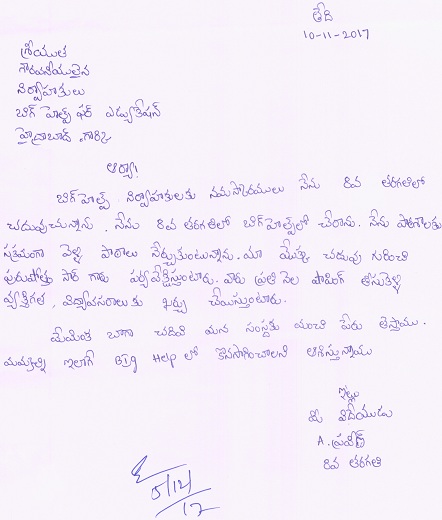 తేది
10-11-2017
శ్రీయుత
గౌరవనీయులైన
నిర్వాహకులు
బిగ్ హెల్ప్ ఫర్ ఎడ్యుకేషన్
హైద్రాబాద్ గారికి
ఆర్యా!
బిగ్‌హెల్ప్ నిర్వాహకులకు నమస్కారములు నేను 8వ తరగతిలో
చదువుచున్నాను. నేను 8వ తరగతిలో బిగ్‌హెల్ప్‌లో చేరాను. నేను పాఠశాలకు
సక్రమంగా వెళ్ళి పాఠాలు నేర్చుకుంటున్నాను. మా యొక్క చదువు గురించి
పురుషోత్తం సార్ గారు పర్యవేక్షిస్తుంటారు. వారు ప్రతి నెల షాపింగ్ తీసుకెళ్ళి
వ్యక్తిగత, విద్యావసరాలకు ఖర్చు చేయిస్తుంటారు.
మేమింత బాగా చదివి మన సంస్థకు మంచి పేరు తెస్తాము.
మమ్మల్ని ఇలాగే BIg Help లో కొనసాగించాలని ఆశిస్తున్నాము
ఇట్లు
మీ విధేయుడు
A. ప్రవీణ్
8వ తరగతి
5/12/17